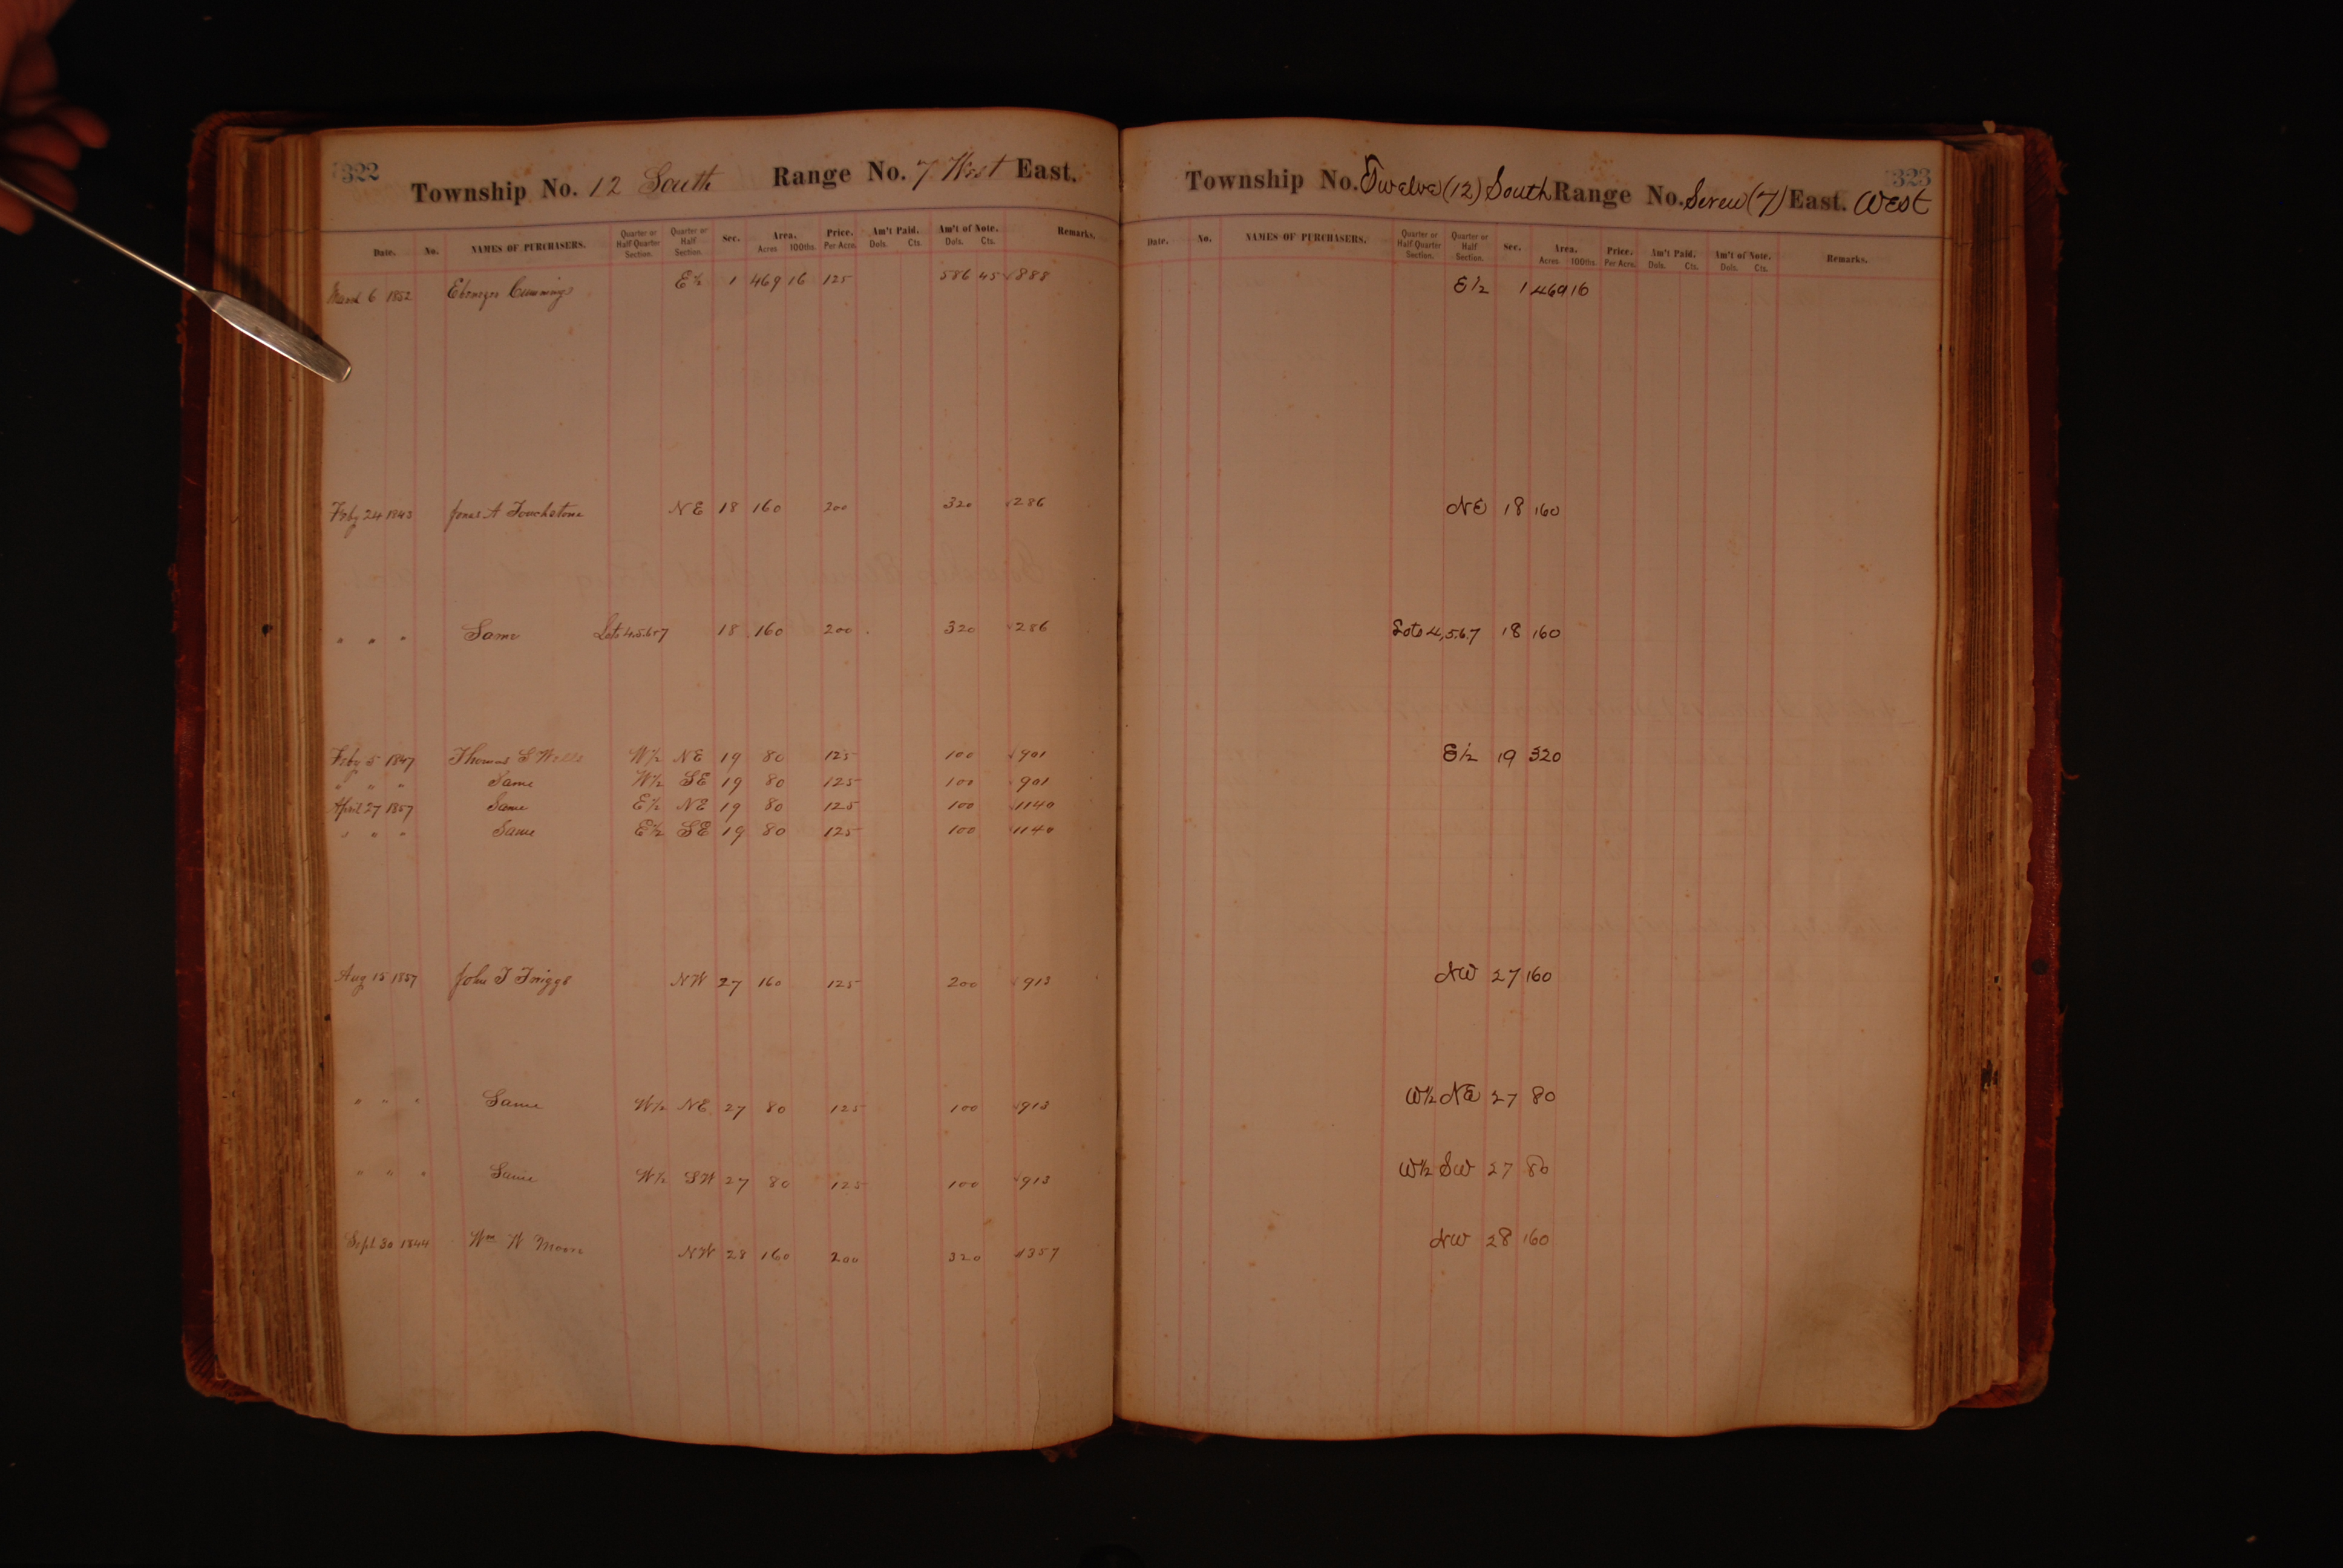 322
Township No. 12 South Range No. 7 West East.
Date. No. NAMES OF PURCHASERS. Quarter or Half Quarter Section. Quarter or Half Section. Sec. Area. Acres 100ths. Price. Per Acre. Am't Paid. Dols. Cts. Am't of Note. Dols. Cts. Remarks.
March 6 1852 Ebenezer Cummings E½ 1 469 16 125 586 45 √888
Feby 24 1843 Jonas A Touchstone NE 18 160 200 320 √286
" " " Same Lots 4.5.6&7 18 160 200 320 √286
Feby 5 1847 Thomas G Wells W½ NE 19 80 125 100 √901
" " " Same W½ SE 19 80 125 100 √901
April 27 1857 Same E½ NE 19 80 125 100 √1140
" " " Same E½ SE 19 80 125 100 √1140
Aug 15 1857 John T Triggs NW 27 160 125 200 √913
" " " Same W½ NE 27 80 125 100 √913
" " " Same W½ SW 27 80 125 100 √913
Sept 30 1844 Wm W Moore NW 28 160 200 320 √357
323
Township No. Twelve (12) South Range No. Seven (7) East. West
Date. No. NAMES OF PURCHASERS. Quarter or Half Quarter Section. Quarter or Half Section. Sec. Area. Acres 100ths. Price. Per Acre. Am't Paid. Dols. Cts. Am't of Note. Dols. Cts. Remarks.
E½ 1 469 16
NE 18 160
Lots 4,5.6.7 18 160
E½ 19 320
NW 27 160
W½ NE 27 80
W½ SW 27 80
NW 28 160